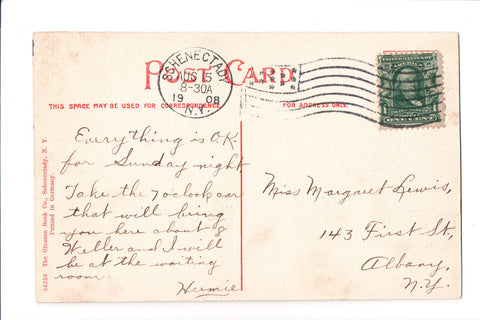 SCHENECTADY
AUG 15
8-30A
1908
N.Y.
POST CARD
THIS SPACE MAY BE USED FOR CORRESPONDENCE
FOR ADDRESS ONLY
ONE CENT
54250 The Gleason Book Co., Schenectady, N. Y.
Printed in Germany.
Everything is O.K.
for Sunday night
Take the 7 o'clock car
that will bring
you here about 8
Weller and I will
be at the waiting
room.
Hermie
Miss Margaret Lewis,
143 First St,
Albany,
N.Y.